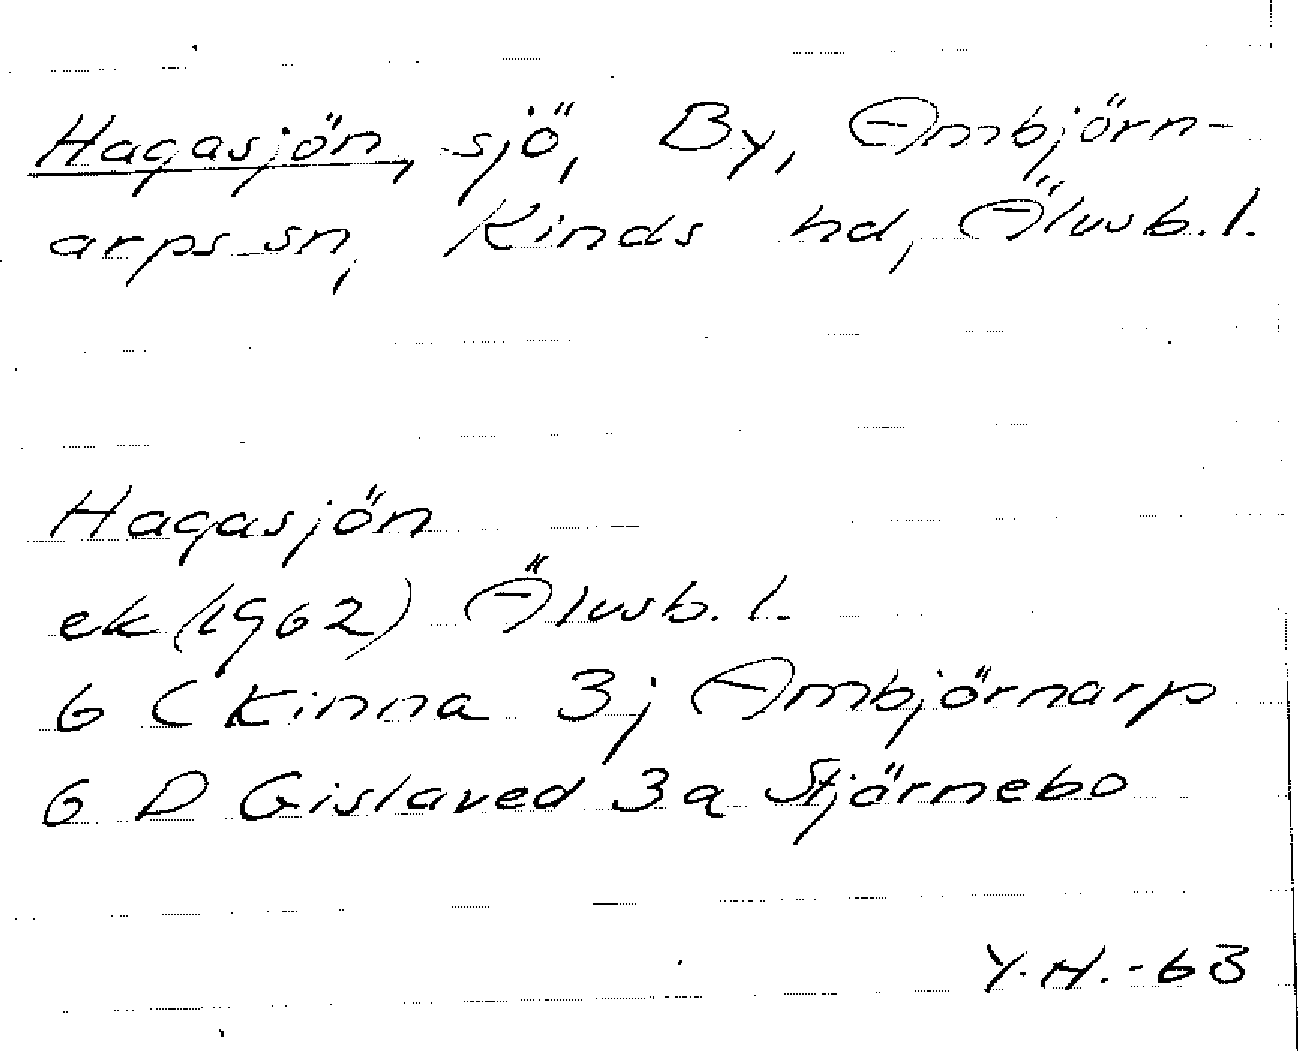 Hagasjön, sjö, By, Ambjörn-
arps sn, Kinds hd, Älvsb. l.
Hagasjön
ek (1962) Älvsb. l.
6 C Kinna 3j Ambjörnarp
6 D Gislaved 3a Stjärnebo
Y.H.-63